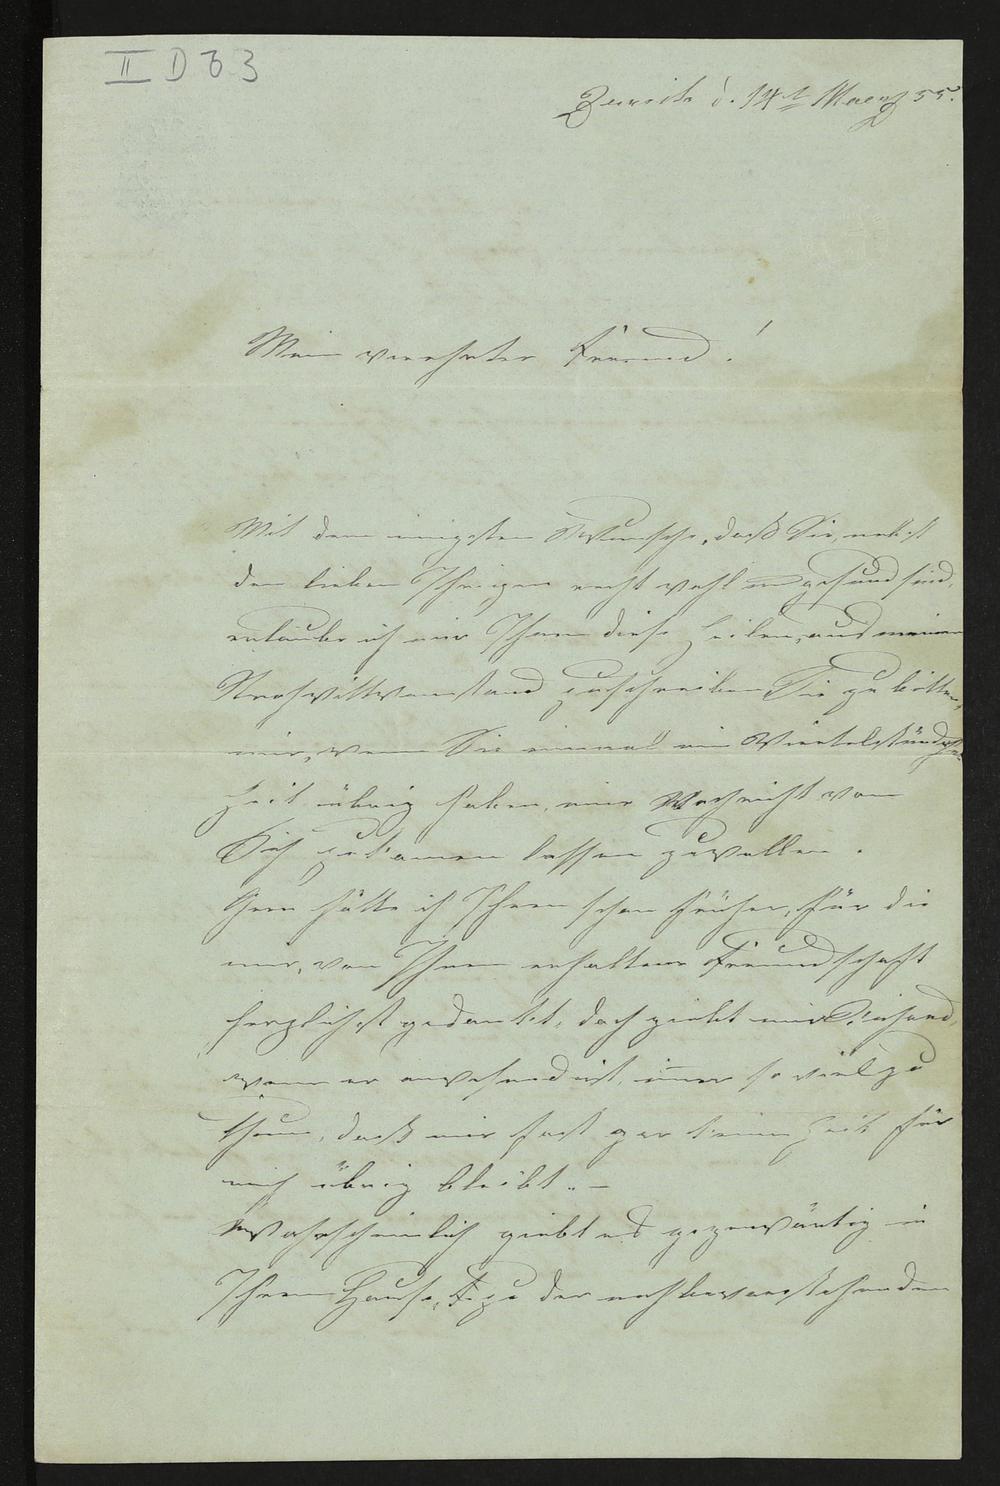 II D 63
Zürich d. 14t Maerz 55.
Mein verehrter Freund!
Mit dem innigsten Wunsche, daß Sie, nebst
den lieben Ihrigen recht wohl u gesund sind,
erlaube ich mir Ihnen diese Zeilen, aus meinem
Strohwittwenstand zuschreiben Sie zu bitten,
mir, wenn Sie einmal ein Viertelstündchen
Zeit übrig haben, eine Nachricht von
Sich zukomen lassen zu wollen.
Gern hätte ich Ihnen schon früher, für die
mir, von Ihnen erhaltene Freundschaft
herzlichst gedankt, doch giebt mir Richard,
wenn er anwesend ist, imer so viel zu
thun, daß mir fast gar keine Zeit für
mich übrig bleibt. –
Wahrscheinlich giebt es gegenwärtig in
Ihrem Hause, zu der nahbevorstehenden